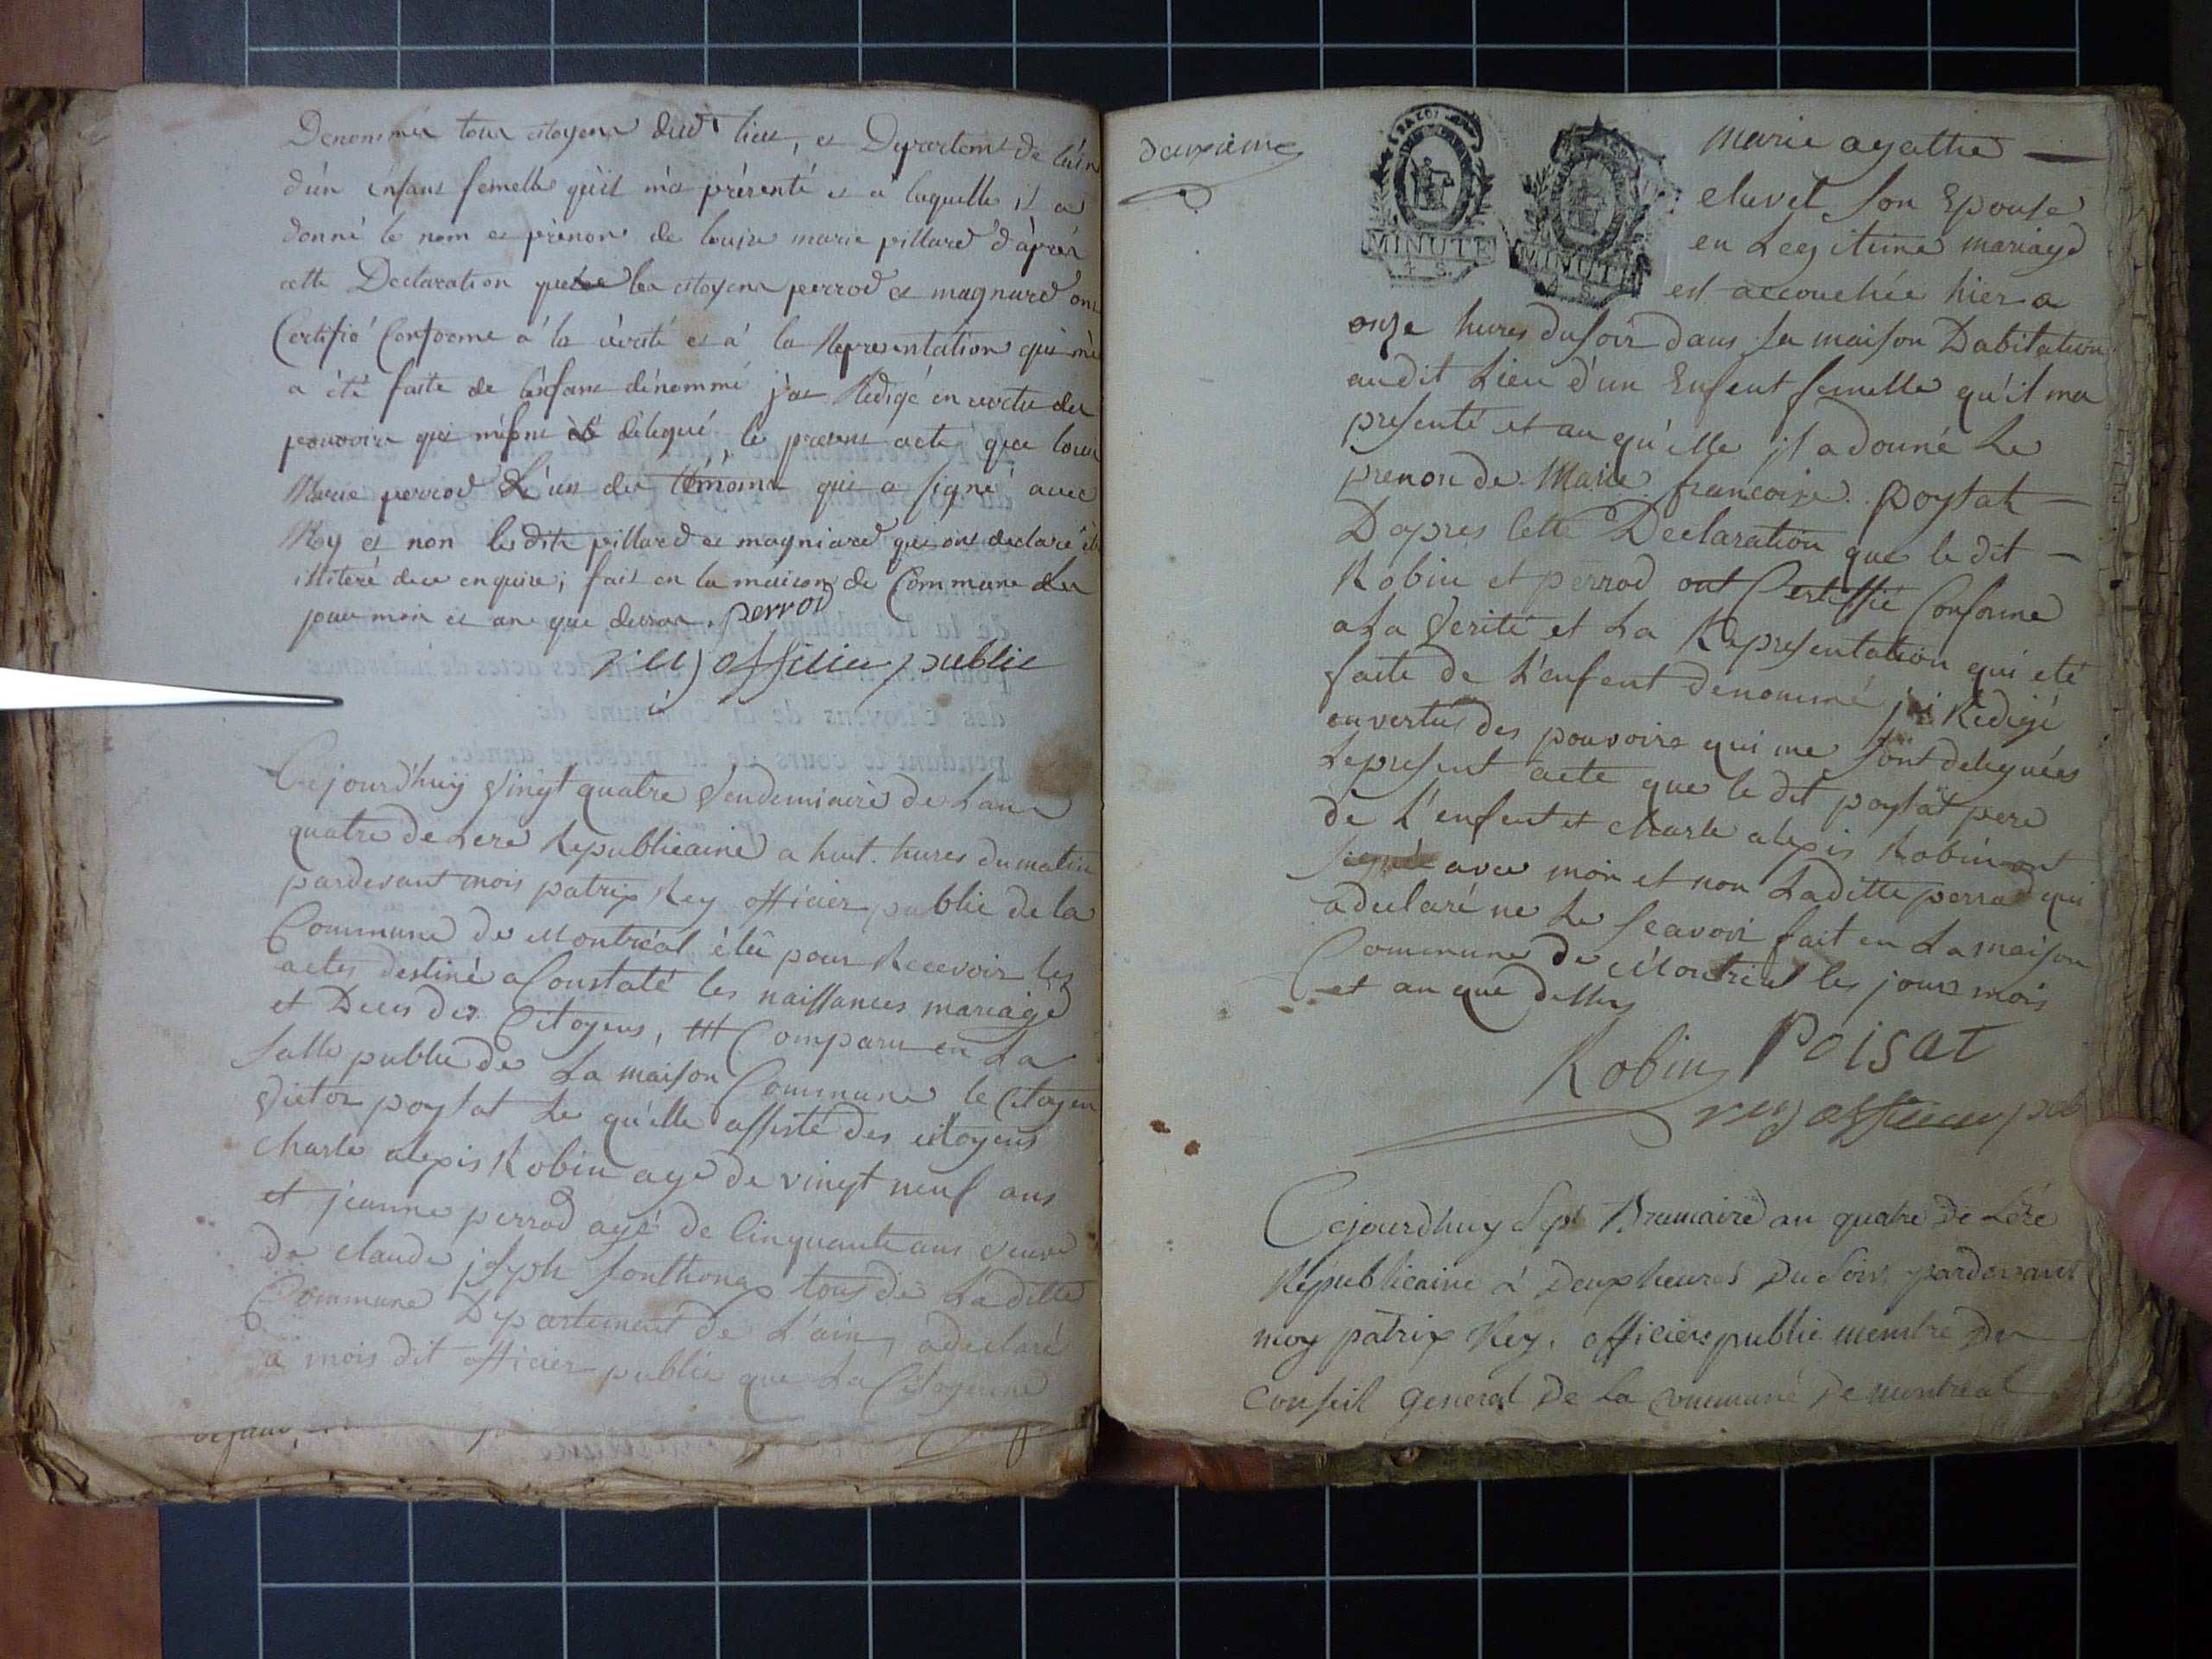 Denommés tous citoyens dud lieu, et Departemt de l'ain
d'un enfant femelle qu'il m'a présenté et à laquelle il a
donné le nom et prénom de louise marie pillard d'après
cette Declaration que les citoyens perrod et magnard ont
Certifié Conforme à la vérité et à la Representation qui m'
a été faite de l'enfant dénommé j'ai Rédigé en vertu des
pouvoirs qui m'ont été délégué, le present acte que louis
Marie perrod L'un des témoins qui a signé avec
Moy et non lesdits pillard et magniard qui ont declaré être
illiteré de ce enquis; fait en la maison de Commune les
jour mois et an que dessus. perrod
rey officier public
Cejourd'huy vingt quatre vendemiaire de Lan
quatre de Lere Republicaine a huit hures du matin
pardevant mois patrix Rey officier public de la
Commune de Montréal élû pour Recevoir les
actes destiné a Constaté les naissances mariage
et Deces des Citoyens, Comparu en La
Salle public de La maison Commune le Citoyen
victor poysat Le qu'elle assisté des citoyens
Charle alexis Robin agé de vingt neuf ans
et jeanne perrod agé de Cinquante ans veuve
de claude joseph Sonthonax tous de Laditte
Commune Departement de L'ain, a declaré
a mois dit officier public que La Citoyenne
deuxieme
MINUTE
4 S.
MINUTE
4 S.
marie agathe
eluvet Son Epouse
en Legitime mariage
est accouchée hier a
onze hures du soir dans sa maison Dabitation
audit Lieu d'un Enfent femelle qu'il ma
presenté et au qu'elle il a donné Le
prenon de Marie francoise poysat
D'apres Cette Declaration que le dit
Robin et perrod ont Certiffié Conforme
a La verité et La Representation qui eté
faite de L'enfent denommé j'ai Redigé
en vertus des pouvoirs qui me sont delegués
Le present acte que le dit poysat pere
de L'enfent et Charle alexis Robin ont
signé avec mois et non Laditte perrod qui
a declaré ne Le scavoir fait en La maison
Commune de Montréal les jour mois
et an que dessus
Robin Poisat
rey officier pub
Cejourdhuy Sept Brumaire an quatre de Lére
Republicaine à deux heures du Soir, pardevant
moy patrix Rey. officier public membre du
Conseil general de La commune de montréal